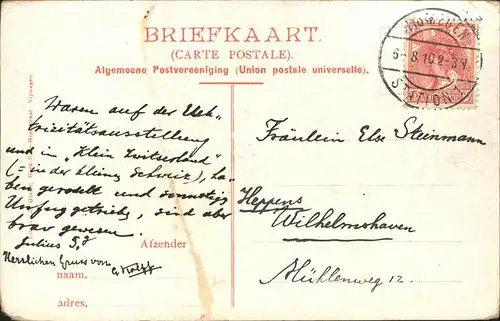 BRIEFKAART.
(CARTE POSTALE).
Algemeene Postvereeniging (Union postale universelle).
STATION
Waren auf der Elek-
trizitätsausstellung
und in „Klein Zwitserland"
(= in der kleinen Schweiz), ha-
ben gerodelt und sonstigen
Unfug getrieben, sind aber
brav gewesen.
Julius
Herzlichen Gruss von
Fräulein Else Steinmann
Heppens
Wilhelmshaven
Mühlenweg 12.
Afzender
naam.
adres.